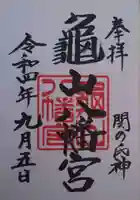 奉拝
関の氏神
亀山八幡宮
令和四年九月五日